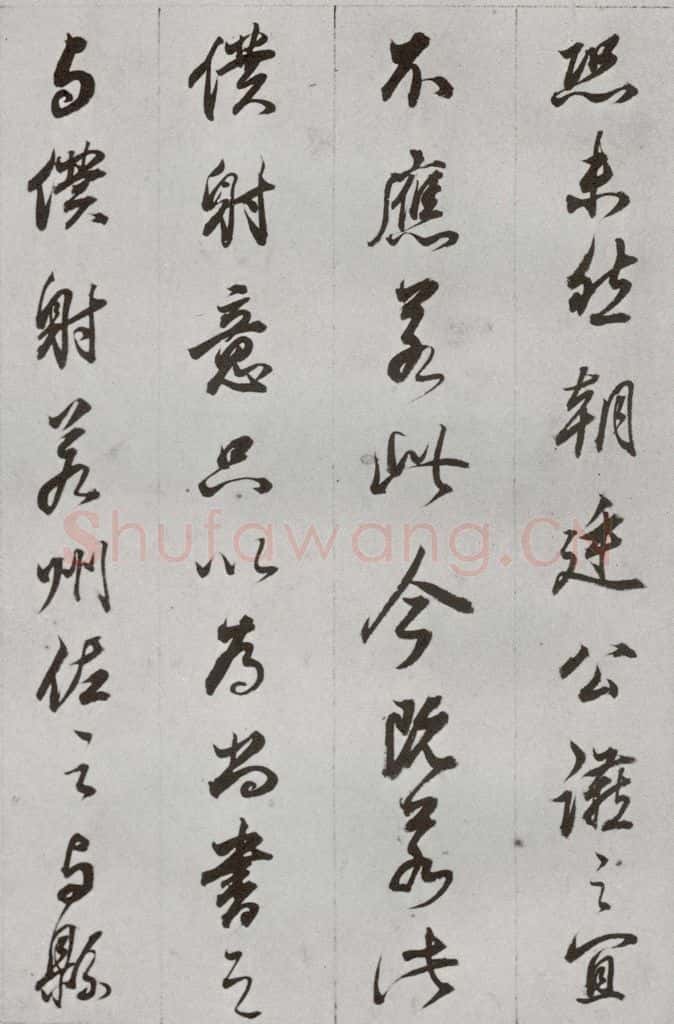 恐未然朝廷公讌之宜
不應若此今既若此
僕射意只以為尚書之
与僕射若州佐之与縣
Shufawang.CN